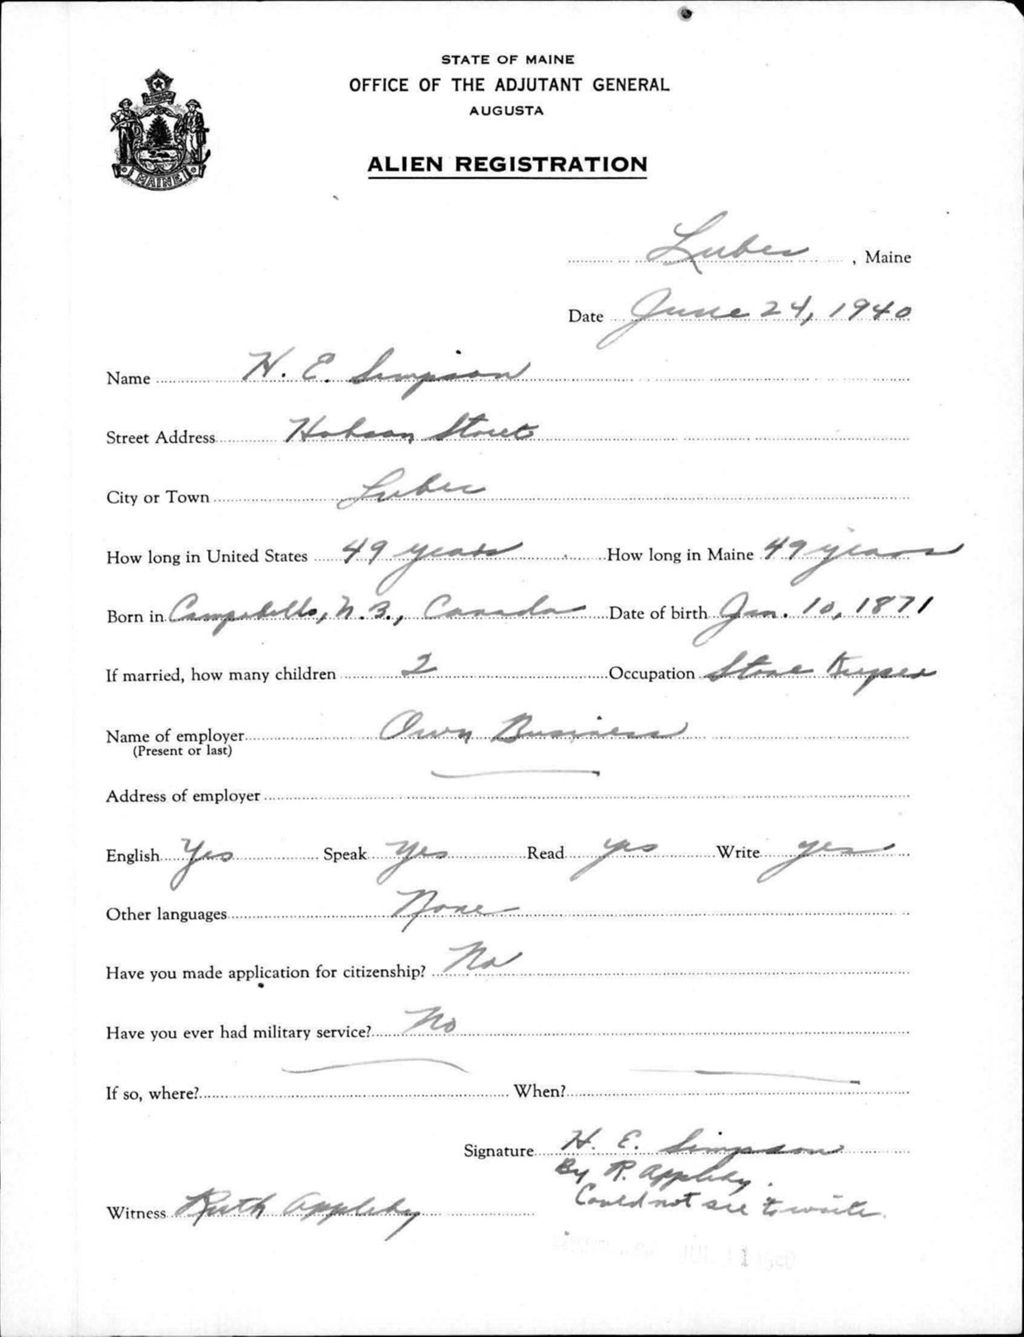 STATE OF MAINE
OFFICE OF THE ADJUTANT GENERAL
AUGUSTA
MAINE
ALIEN REGISTRATION
Lubec, Maine
Date June 24, 1940
Name H. E. Simpson
Street Address Hobson Street
City or Town Lubec
How long in United States 49 years How long in Maine 49 years
Born in Campobello, N. B., Canada Date of birth Jan. 10, 1871
If married, how many children 2 Occupation Store Keeper
Name of employer Own Business
(Present or last)
Address of employer
English Yes Speak Yes Read yes Write yes
Other languages None
Have you made application for citizenship? No
Have you ever had military service? No
If so, where? When?
Signature H. E. Simpson
By R. Appleby.
Could not see to write.
Witness Ruth Appleby